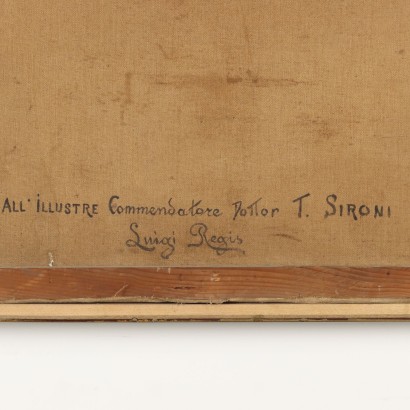 ALL' ILLUSTRE Commendatore Dottor T. SIRONI
Luigi Regis